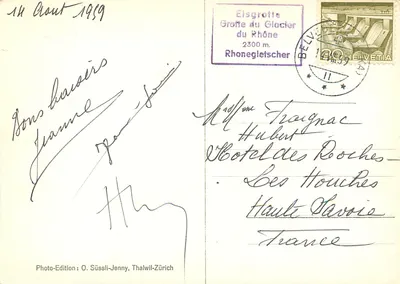 14 Aout 1959
Bons baisers
Jeanne
Eisgrotte
Grotte du Glacier
du Rhône
2300 m.
Rhonegletscher
HELVETIA
Traignac
Hubert
Hotel des Roches
Les Houches
Haute Savoie
France
Photo-Edition: O. Süssli-Jenny, Thalwil-Zürich